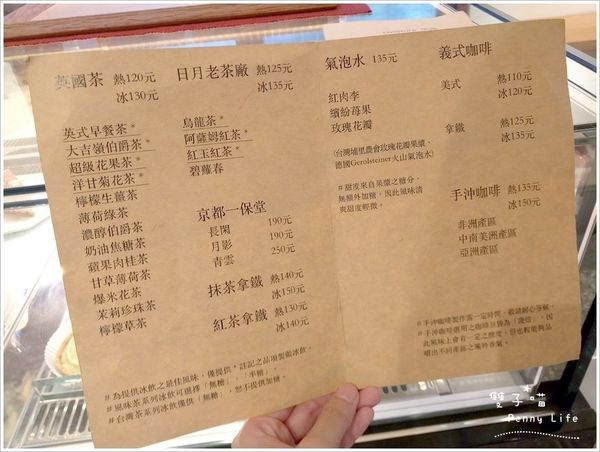 英國茶 熱120元
冰130元
英式早餐茶*
大吉嶺伯爵茶*
超級花果茶*
洋甘菊花茶*
檸檬生薑茶
薄荷綠茶
濃醇伯爵茶
奶油焦糖茶
蘋果肉桂茶
甘草薄荷茶
爆米花茶
茉莉珍珠茶
檸檬草茶
日月老茶廠 熱125元
冰135元
烏龍茶*
阿薩姆紅茶*
紅玉紅茶*
碧蘿春
京都一保堂
長閑 190元
月影 190元
青雲 250元
抹茶拿鐵 熱140元
冰150元
紅茶拿鐵 熱130元
冰140元
#為提供冰飲之最佳風味,僅提供*註記之品項製做冰飲。
#風味茶系列冰飲可選擇「無糖」、「半糖」。
#台灣茶系列冰飲僅供「無糖」,恕不提供加糖。
氣泡水 135元
紅肉李
繽紛苺果
玫瑰花瓣
(台灣埔里農會玫瑰花瓣果漿、
德國Gerolsteiner火山氣泡水)
#甜度來自果漿之糖分,
無額外加糖,因此風味清
爽甜度輕微。
義式咖啡
美式 熱110元
冰120元
拿鐵 熱125元
冰135元
手沖咖啡 熱135元
冰150元
非洲產區
中南美洲產區
亞洲產區
#手沖咖啡製作需一定時間,敬請耐心等候。
#手沖咖啡選用之咖啡豆皆為「淺焙」,因
此風味上會有一定之酸度,但也較能夠品
嚐出不同產區之獨特香氣。
雙子喵
Penny Life